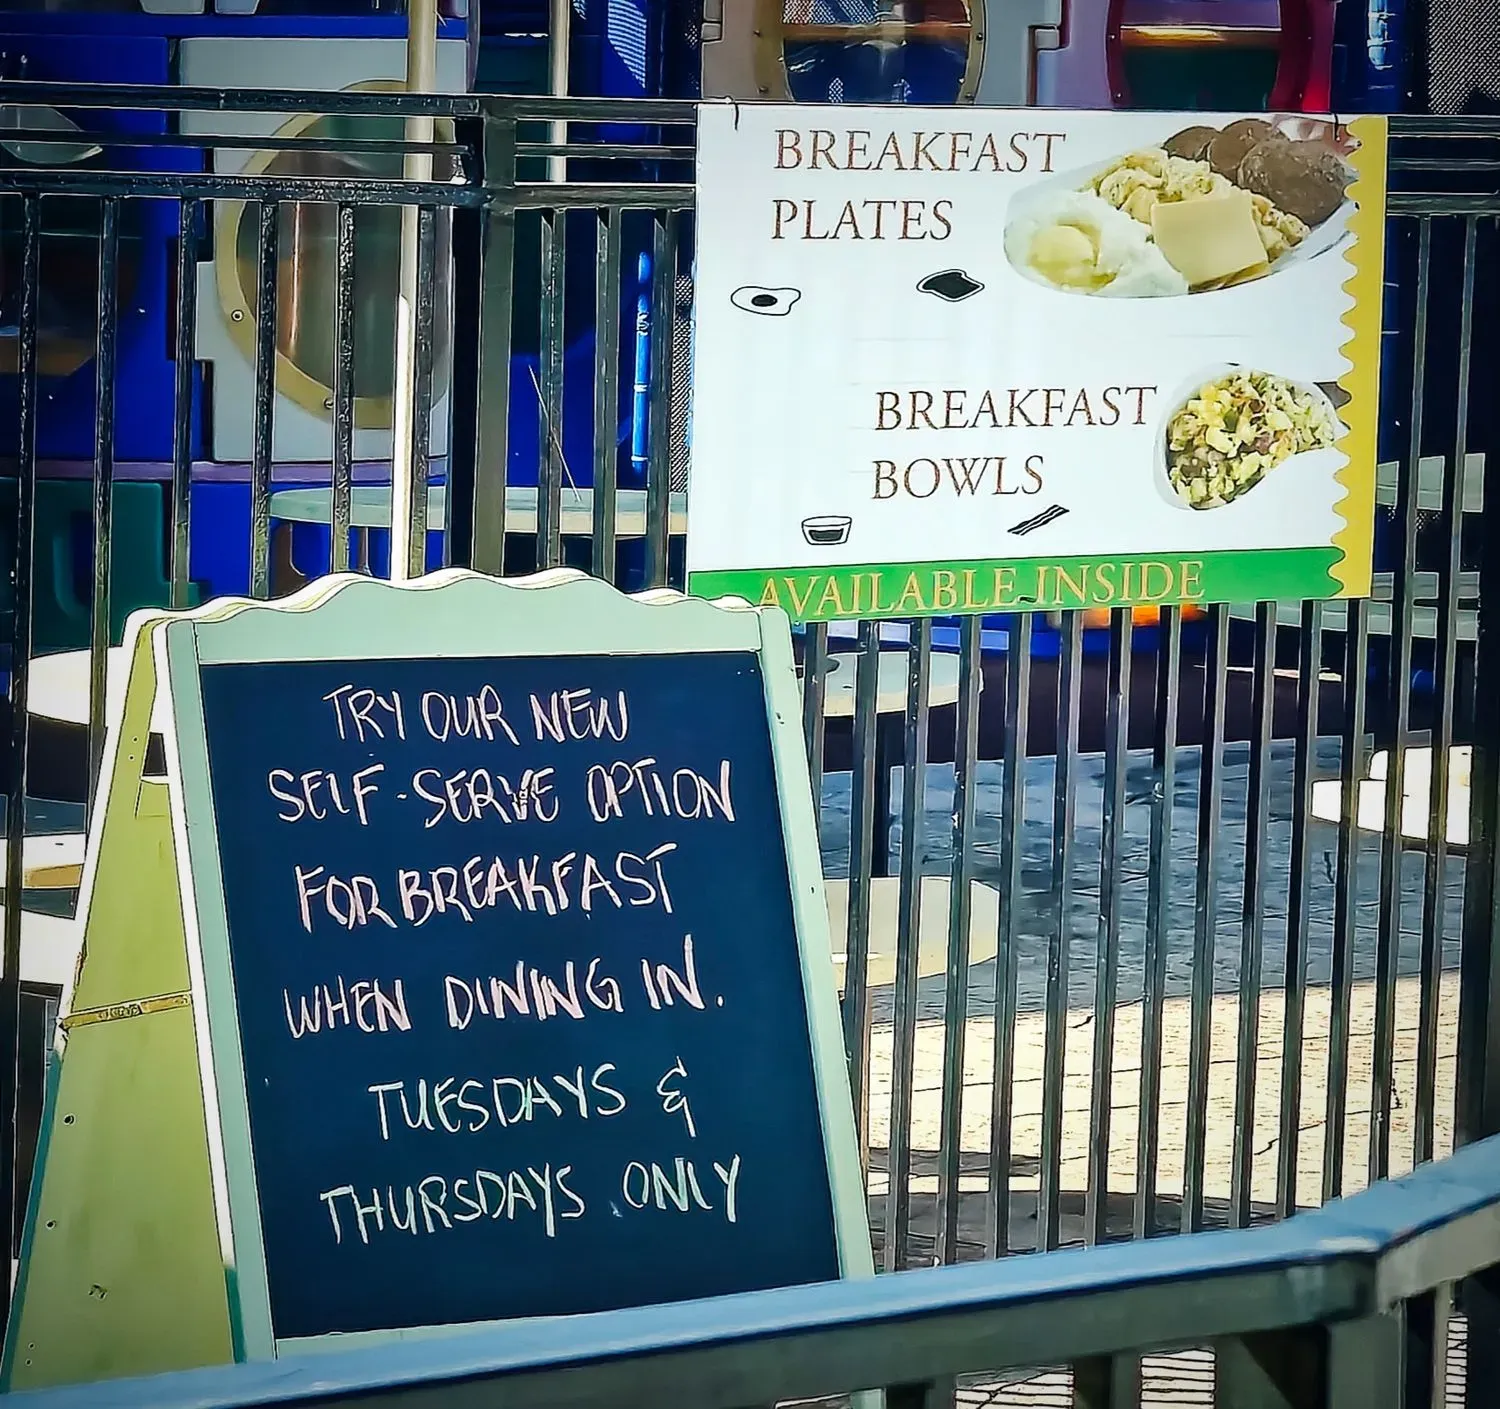 BREAKFAST
PLATES
BREAKFAST
BOWLS
AVAILABLE INSIDE
TRY OUR NEW
SELF-SERVE OPTION
FOR BREAKFAST
WHEN DINING IN.
TUESDAYS &
THURSDAYS ONLY